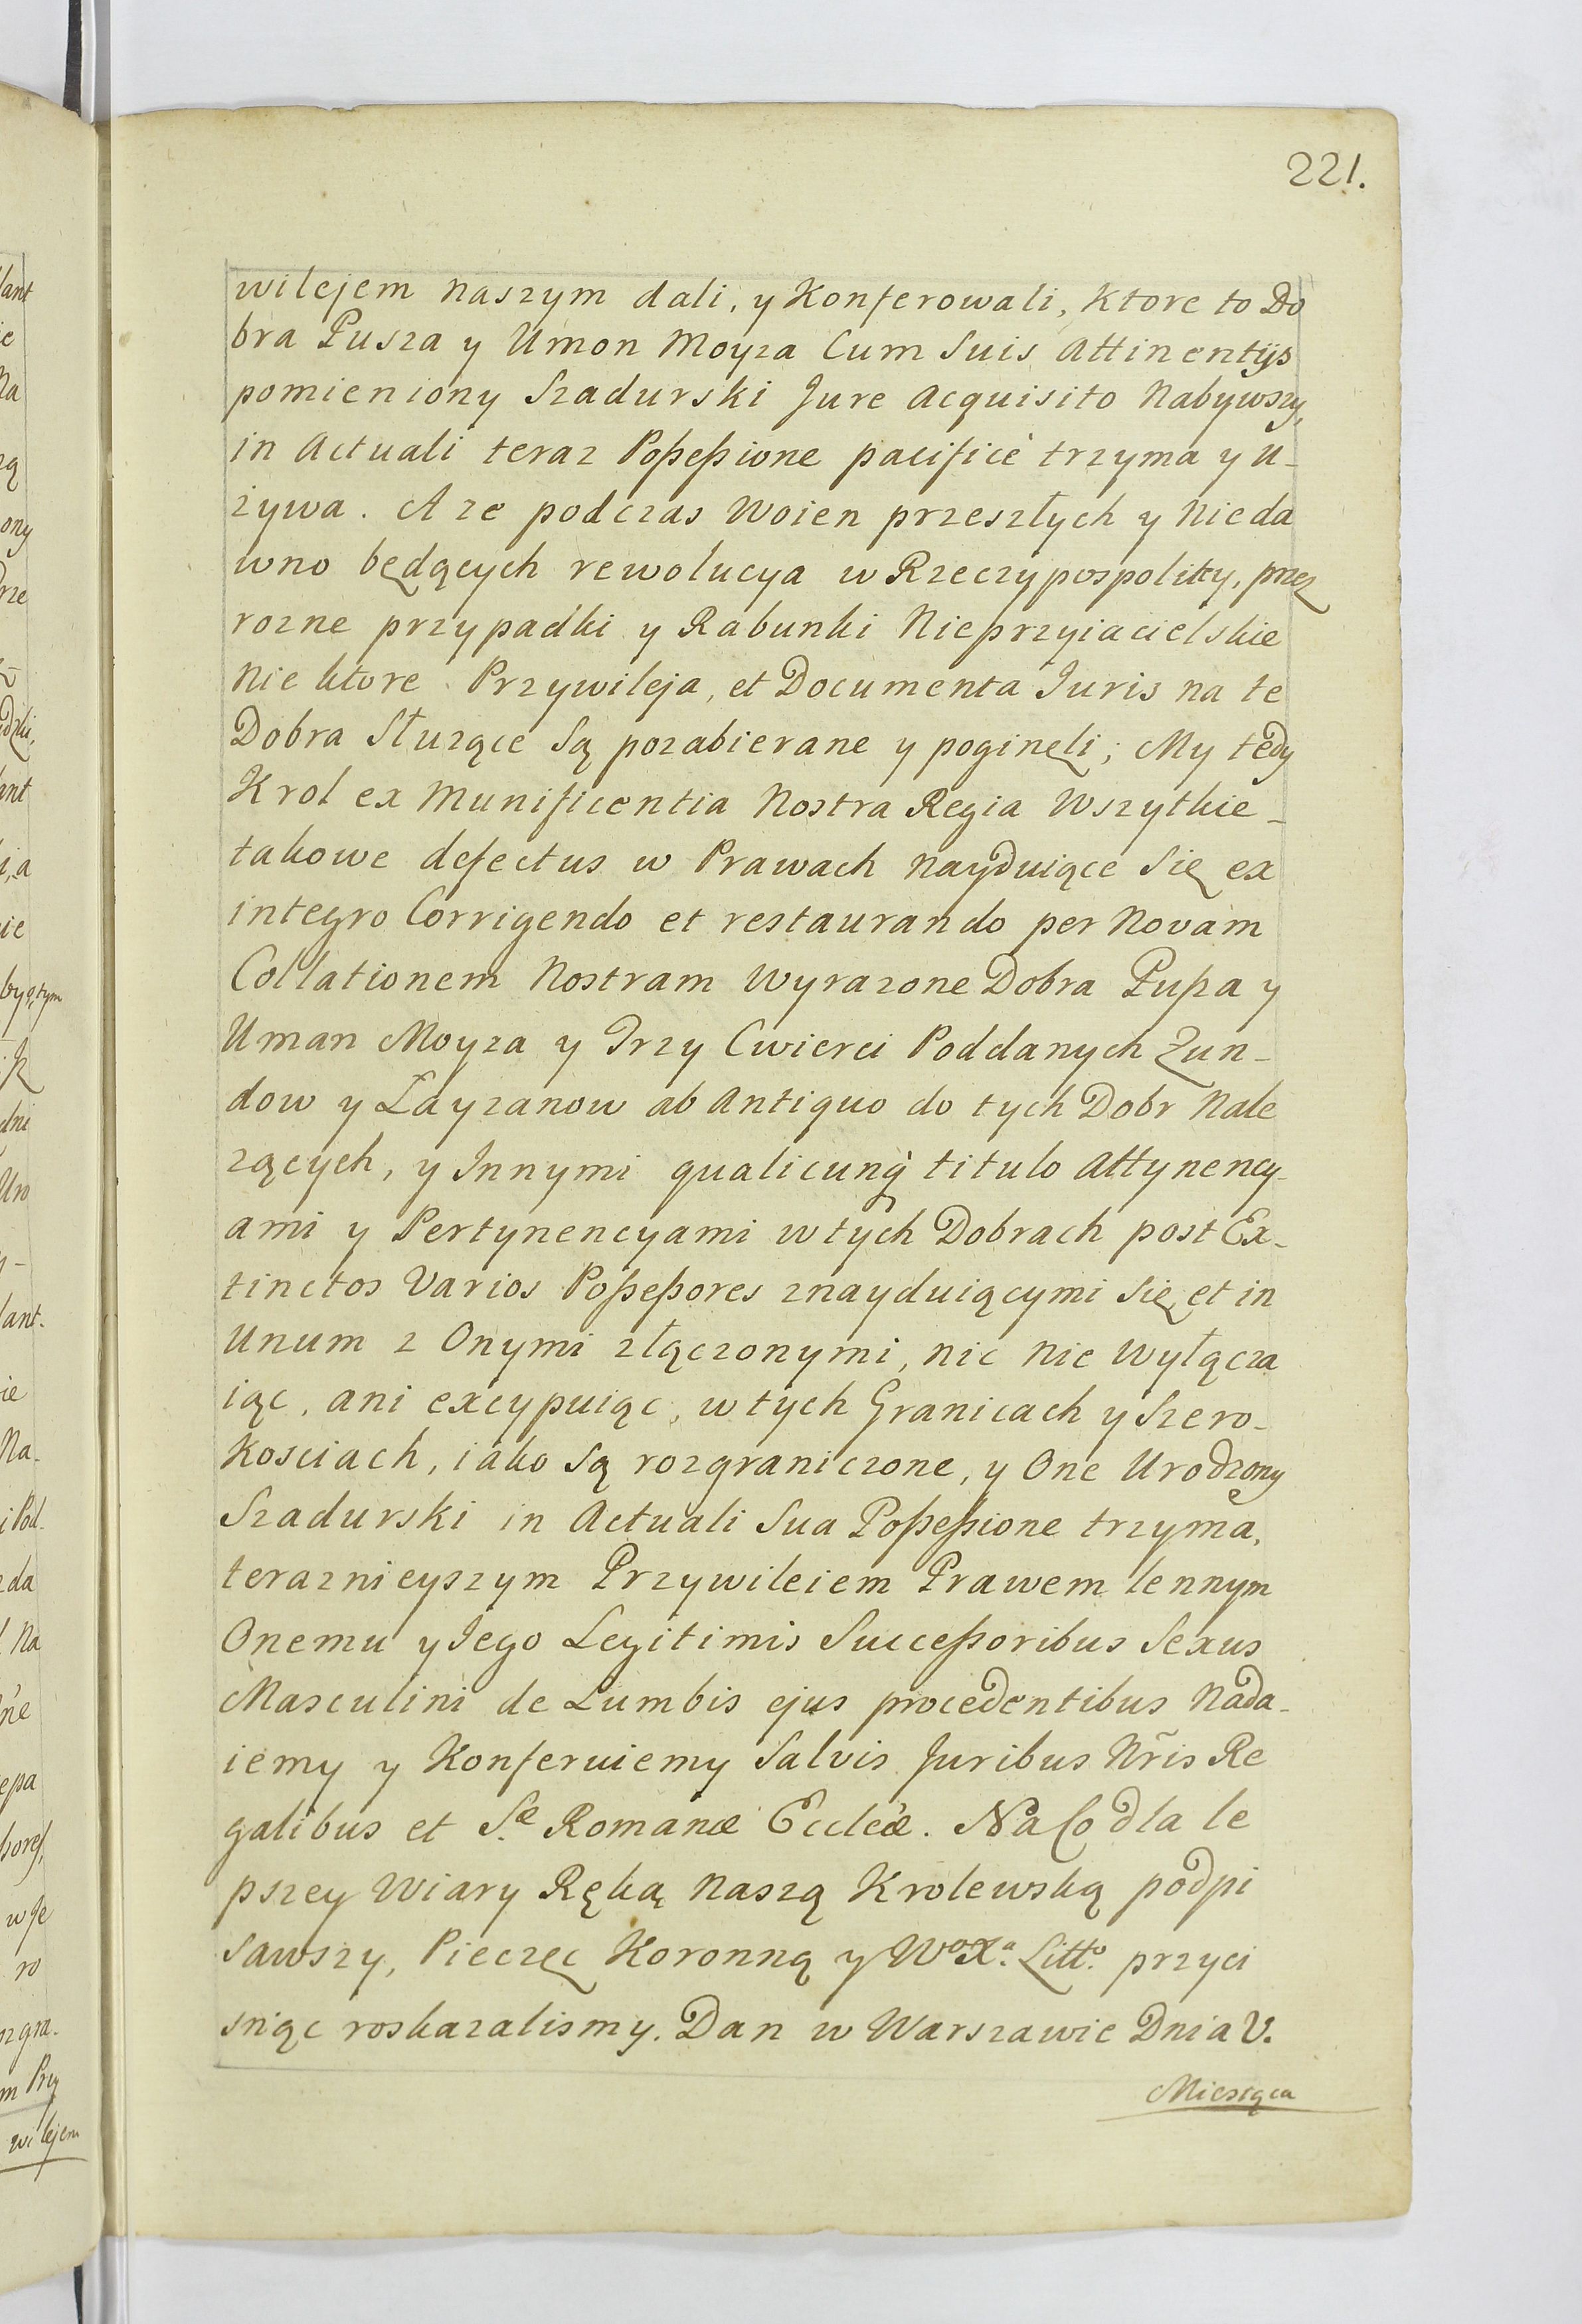 221.
wilejem naszym dali, y Konferowali, Ktore to Do
bra Pusza y Umon Moyza Cum Suis Attinentijs
pomieniony Szadurski Jure Acquisito Nabywszy,
in Actuali teraz Poßeßione pacificè trzyma y u-
zywa. A ze podczas Woien przeszłych y Nieda
wno będących rewolucya w Rzeczypospolitey, przez
rozne przypadki y Rabunki Nieprzyiacielskie
Nie ktore Przywileja, et Documenta Juris na te
Dobra Słuzące Są pozabierane y pogineli; My tedy
Krol ex Munificentia Nostra Regia Wszytkie-
takowe defectus w Prawach nayduiące Się ex
integro Corrigendo et restaurando per Novam
Collationem Nostram Wyrazone Dobra Pußa y
Uman Moyza y Trzy Cwierci Poddanych Zun-
dow y Layzanow ab Antiquo do tych Dobr Nale
zących, y Innymi qualicunq̀ titulo Attynency-
ami y Pertynencyami w tych Dobrach post Ex-
tinctos Varios Poßeßores znayduiącymi Się et in
Unum z Onymi złączonymi, nic nie wyłącza
iąc, ani excypuiąc, w tych Granicach y Szero-
kosciach, iako Są rozgraniczone, y One Urodzony
Szadurski in Actuali Sua Poßeßione trzyma,
teraznieyszym Przywileiem Prawem lennym
Onemu y Jego Legitimis Succeßoribus Sexus
Masculini de Lumbis ejus procedentibus Nada-
iemy y Konferuiemy Salvis Juribus Nr̃is Re
galibus et S.æ Romanæ Eccleæ. Na Co dla le
pszey Wiary Ręką Naszą Krolewską podpi
sawszy, Pieczęc Koronną y Wº Xª. Littº. przyci
snąc roskazalismy. Dan w Warszawie Dnia V.
Miesiąca